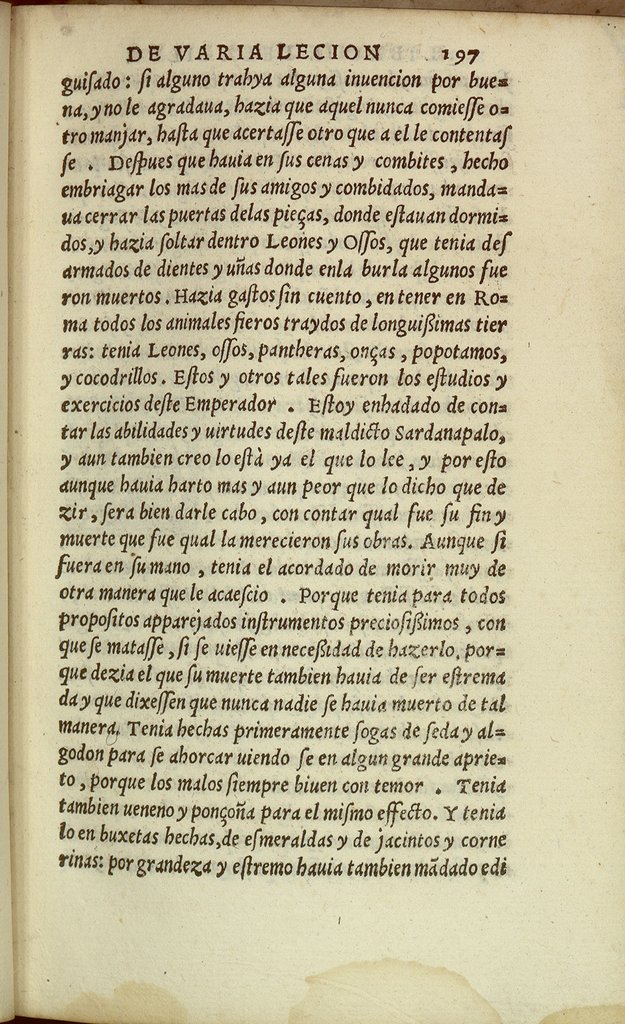 DE VARIA LECION 197
guiſado: ſi alguno trahya alguna inuencion por bue=
na, y no le agradaua, hazia que aquel nunca comieſſe o=
tro manjar, haſta que acertaſſe otro que a el le contentaſ
ſe . Deſpues que hauia en ſus cenas y combites, hecho
embriagar los mas de ſus amigos y combidados, manda=
ua cerrar las puertas delas pieças, donde eſtauan dormi=
dos, y hazia ſoltar dentro Leones y Oſſos, que tenia deſ
armados de dientes y uñas donde enla burla algunos fue
ron muertos. Hazia gaſtos ſin cuento, en tener en Ro=
ma todos los animales fieros traydos de longuißimas tier
ras: tenia Leones, oſſos, pantheras, onças, popotamos,
y cocodrillos. Eſtos y otros tales fueron los eſtudios y
exercicios deſte Emperador . Eſtoy enhadado de con=
tar las abilidades y uirtudes deſte maldicto Sardanapalo,
y aun tambien creo lo eſtà ya el que lo lee, y por eſto
aunque hauia harto mas y aun peor que lo dicho que de
zir, ſera bien darle cabo, con contar qual fue ſu fin y
muerte que fue qual la merecieron ſus obras. Aunque ſi
fuera en ſu mano, tenia el acordado de morir muy de
otra manera que le acaeſcio . Porque tenia para todos
propoſitos apparejados inſtrumentos precioſißimos, con
que ſe mataſſe, ſi ſe uieſſe en neceßidad de hazerlo, por=
que dezia el que ſu muerte tambien hauia de ſer eſtrema
da y que dixeſſen que nunca nadie ſe hauia muerto de tal
manera. Tenia hechas primeramente ſogas de ſeda y al=
godon para ſe ahorcar uiendo ſe en algun grande aprie=
to, porque los malos ſiempre biuen con temor . Tenia
tambien ueneno y ponçoña para el miſmo effecto. Y tenia
lo en buxetas hechas, de eſmeraldas y de jacintos y corne
rinas: por grandeza y eſtremo hauia tambien mãdado edi